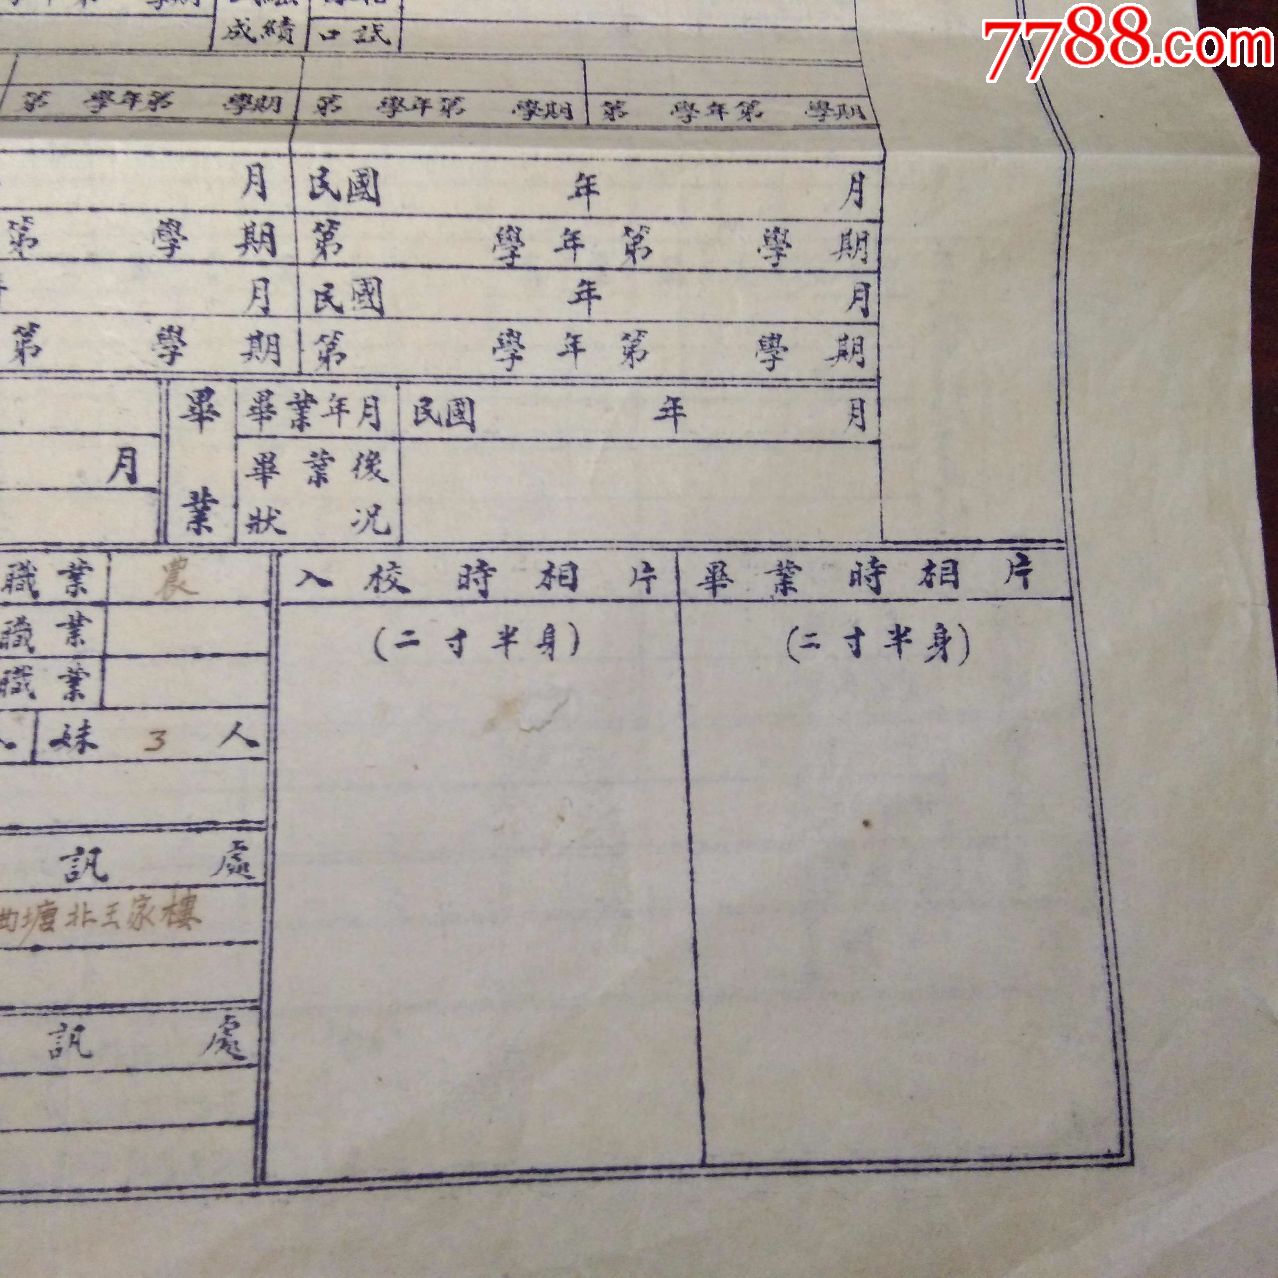 7788.com
成績 口試
第 學年第 學期 第 學年第 學期 第 學年第 學期
月 民國 年 月
第 學期 第 學年第 學期
月 民國 年 月
第 學期 第 學年第 學期
畢業 畢業年月 民國 年 月
月 畢業後狀況
職業 農 入校時相片 畢業時相片
職業 (二寸半身) (二寸半身)
職業
人 妹 3 人
訊處
曲塘北王家樓
訊處